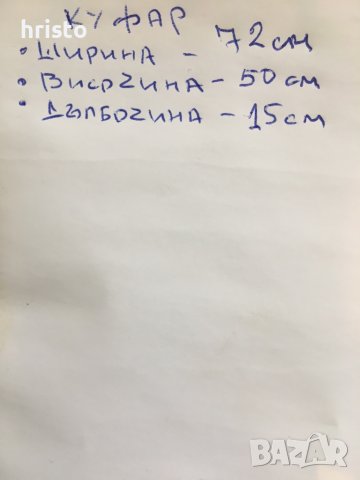 hristo
КУФАР
• ШИРИНА – 72 см
• ВИСОЧИНА – 50 см
• ДЪЛБОЧИНА – 15 см
BAZAR